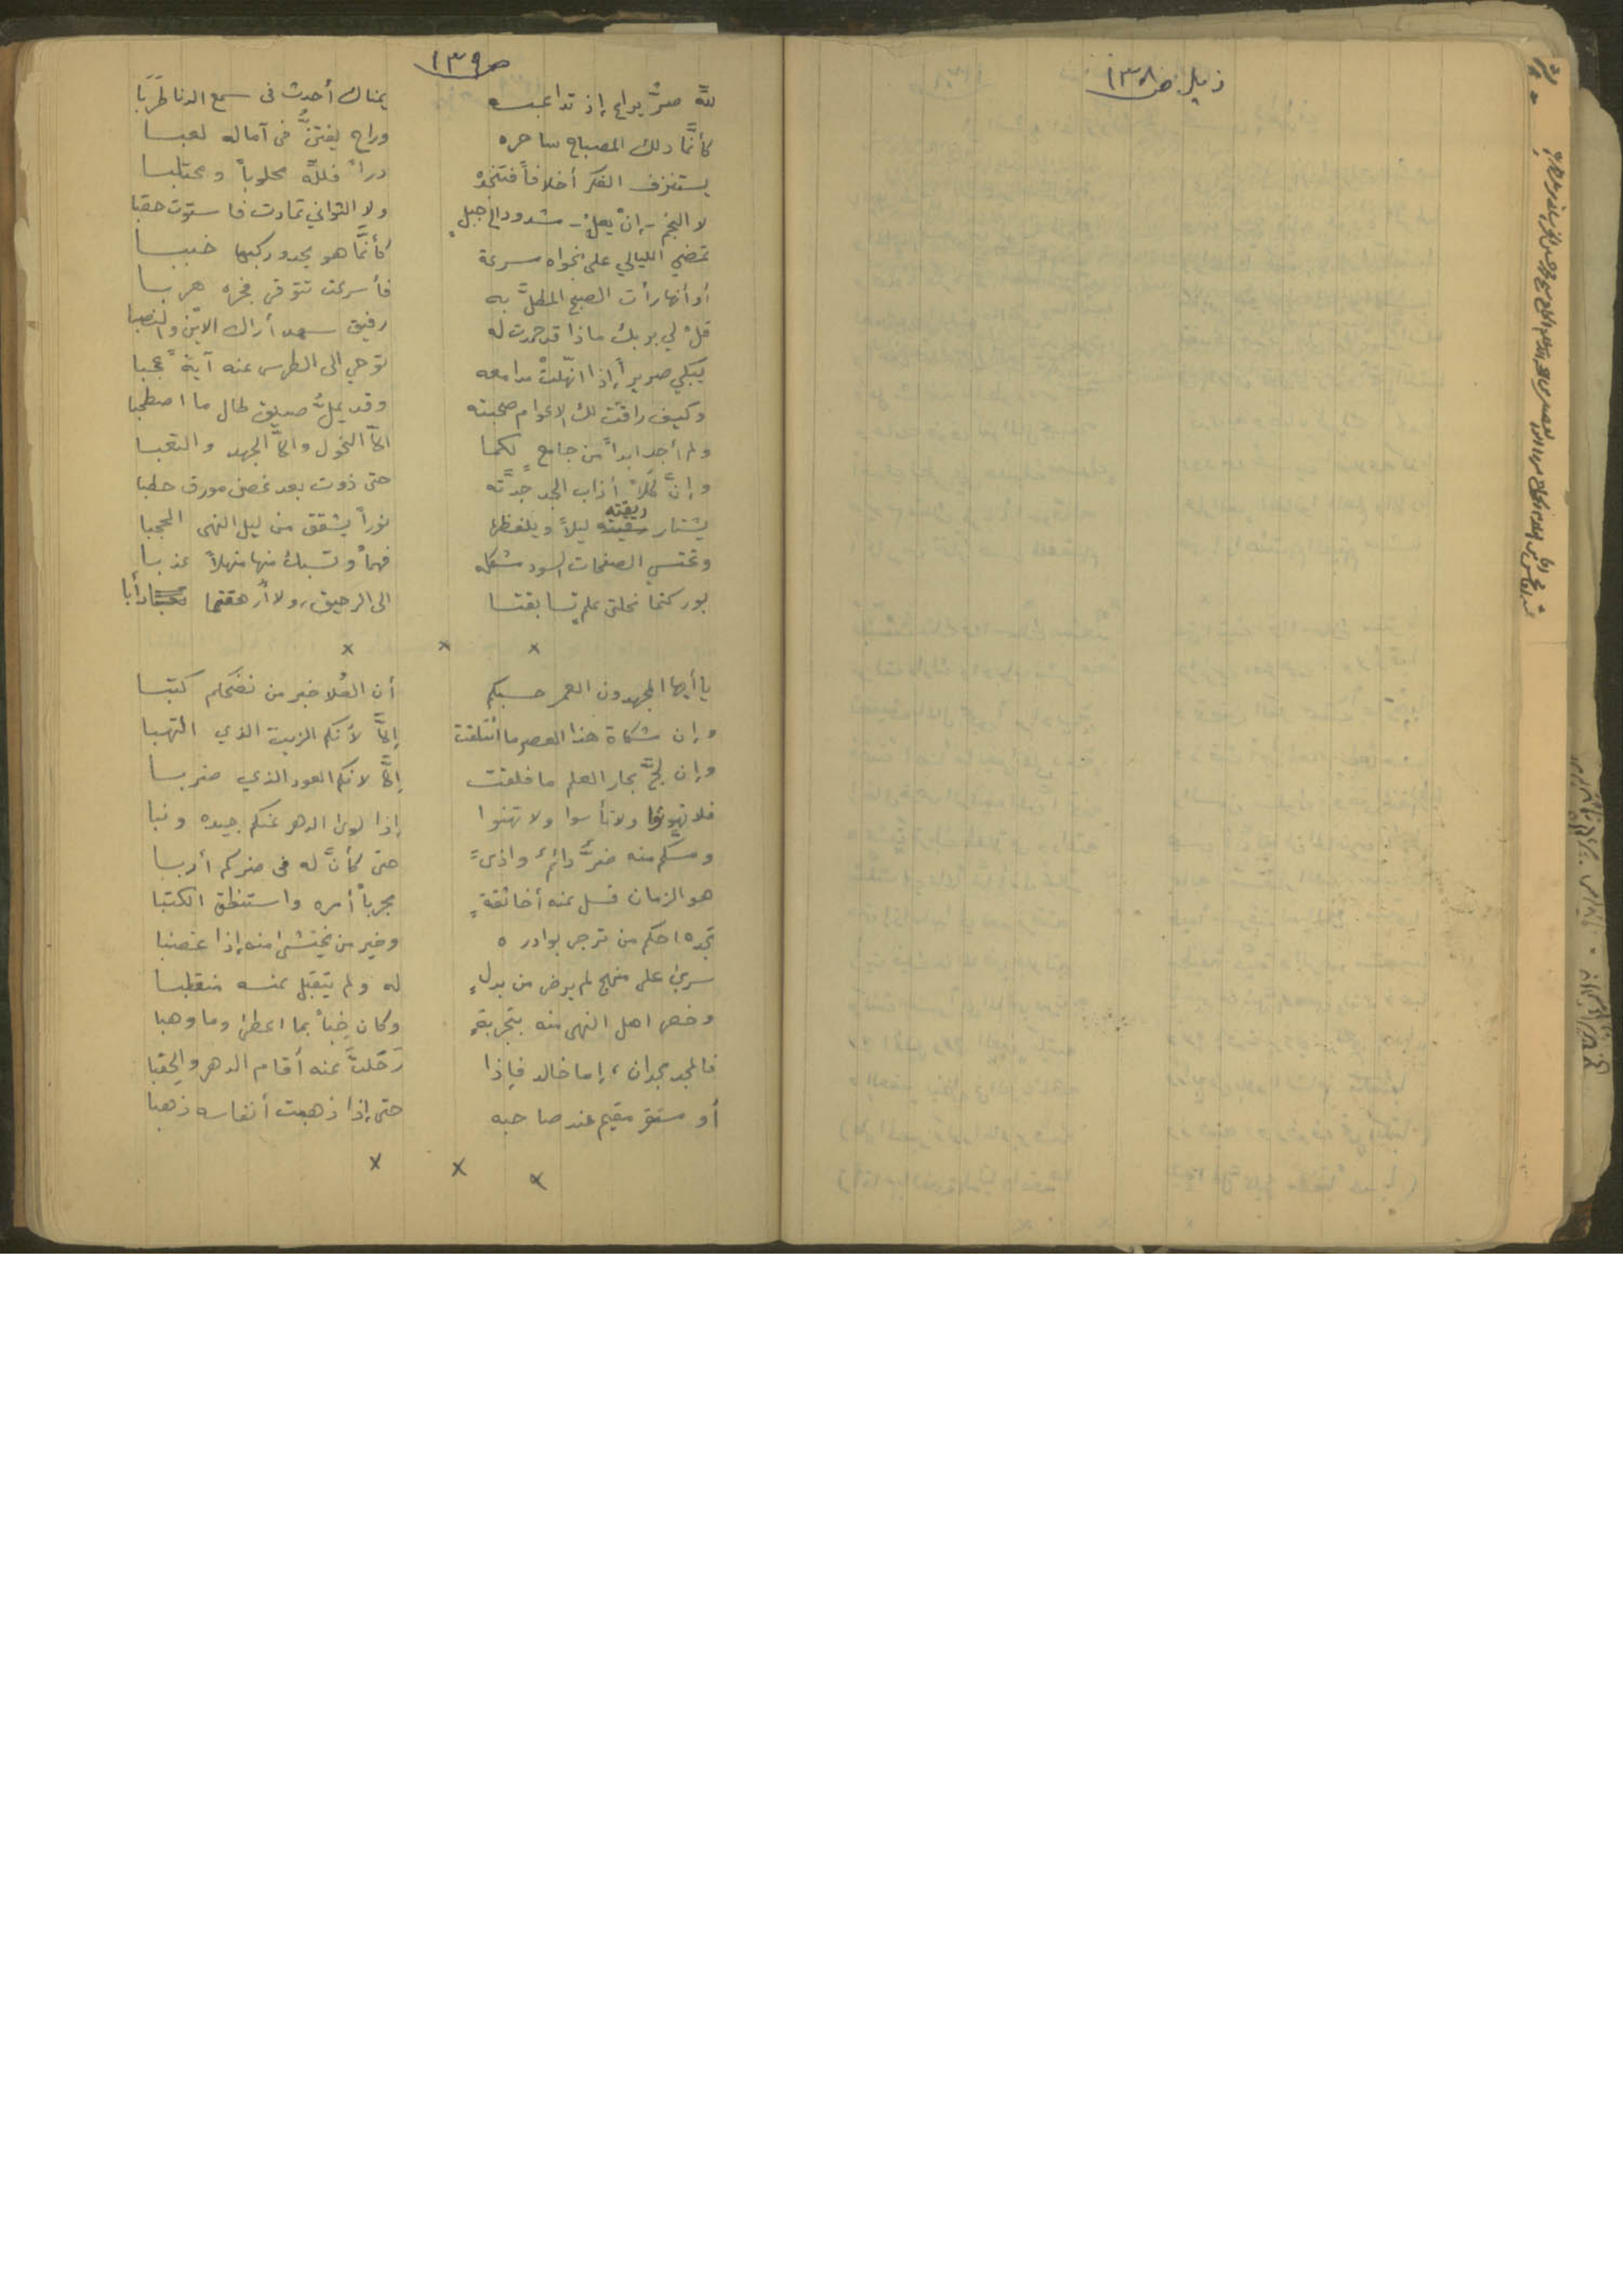 ذيل ص ١٣٨
ص ١٣٩
للّه صرُّ يراعٍ إذ تداعبه يمناك أحدث في سمع الدنا طَرَبَا
كأنَّما دلك المصباح ساحره وراح يفتنُّ في آماله لعبا
يستنزف الفكر أخلافاً فتنخذْ درا فللّه محلوباً ومحتلبا
لا النجم - إنْ يعلُ - مشدود إلى جبلٍ ولا الثواني تمادت فاستوت حقبا
تمضي الليالي على نجواه سرعة كأنَّما هو يحدو ركبها خببا
أو أنها رأت الصبح المطلَّ به فأسرعت تتوقى فجره هربا
قلْ لي بربك ماذا قد حمدت له رفيق سهد أراك الاين والنصبا
يبكي صريراً إذا انهلّتْ مدامعه توحي الى الطرس عنه آيةً عجبا
وكيف راقت لك الاعوام صحبته وقد يملُّ صديق طال ما اصطحبا
ولم أجد ابداً من جامعٍ لكما الّا النحول والّا الجهد والتعبا
وإنَّ كلاً أذاب المجد جدَّته حتى ذوت بعد غصن مورق حطبا
يشتار ريقته ليلاً ويلفظها نوراً يشقق من ليل النهى الحجبا
وتحتسي الصفحات السود مشكله فهماً وتسبك منها منهلاً عذبا
بوركتما نحلتى علم تسابقتا الى الرحيق، ولا أرهقتما دأبا
× × ×
يا أيها المجهدون العمر حسبكم أن العُلا خير من نضحكم كتبا
وإن مشكاة هذا العصر ما ائتلقت إلّا لأنكم الزيت الذي التهبا
وإن لجَّ بحار العلم ما فلقت إلّا لانكم العود الذي ضربا
فلا تهونوا ولا تأسوا ولا تهنوا إذا لوى الدهر عنكم جيده ونبا
ومسكم منه ضرٌّ دائمٌ واذىً حتى كأنَّ له في ضركم أربا
هو الزمان فسل عنه أخا ثقةٍ مجرباً أمره واستنطق الكتبا
تجده احكم من ترجى بوادره وخير من يختشى منه إذا غضبا
سرى على منهج لم يرض من بدلٍ له ولم يتقبل عنه منقلبا
وخص اهل النهى منه بتجربةٍ وكان خِبأ بما اعطى وما وهبا
فالمجد مجدان، إما خالد فإذا رَحَلتَ عنه أقام الدهر والحقبا
أو مستقر مقيم عند صاحبه حتى إذا ذهبت أنفاسه ذهبا
× × ×